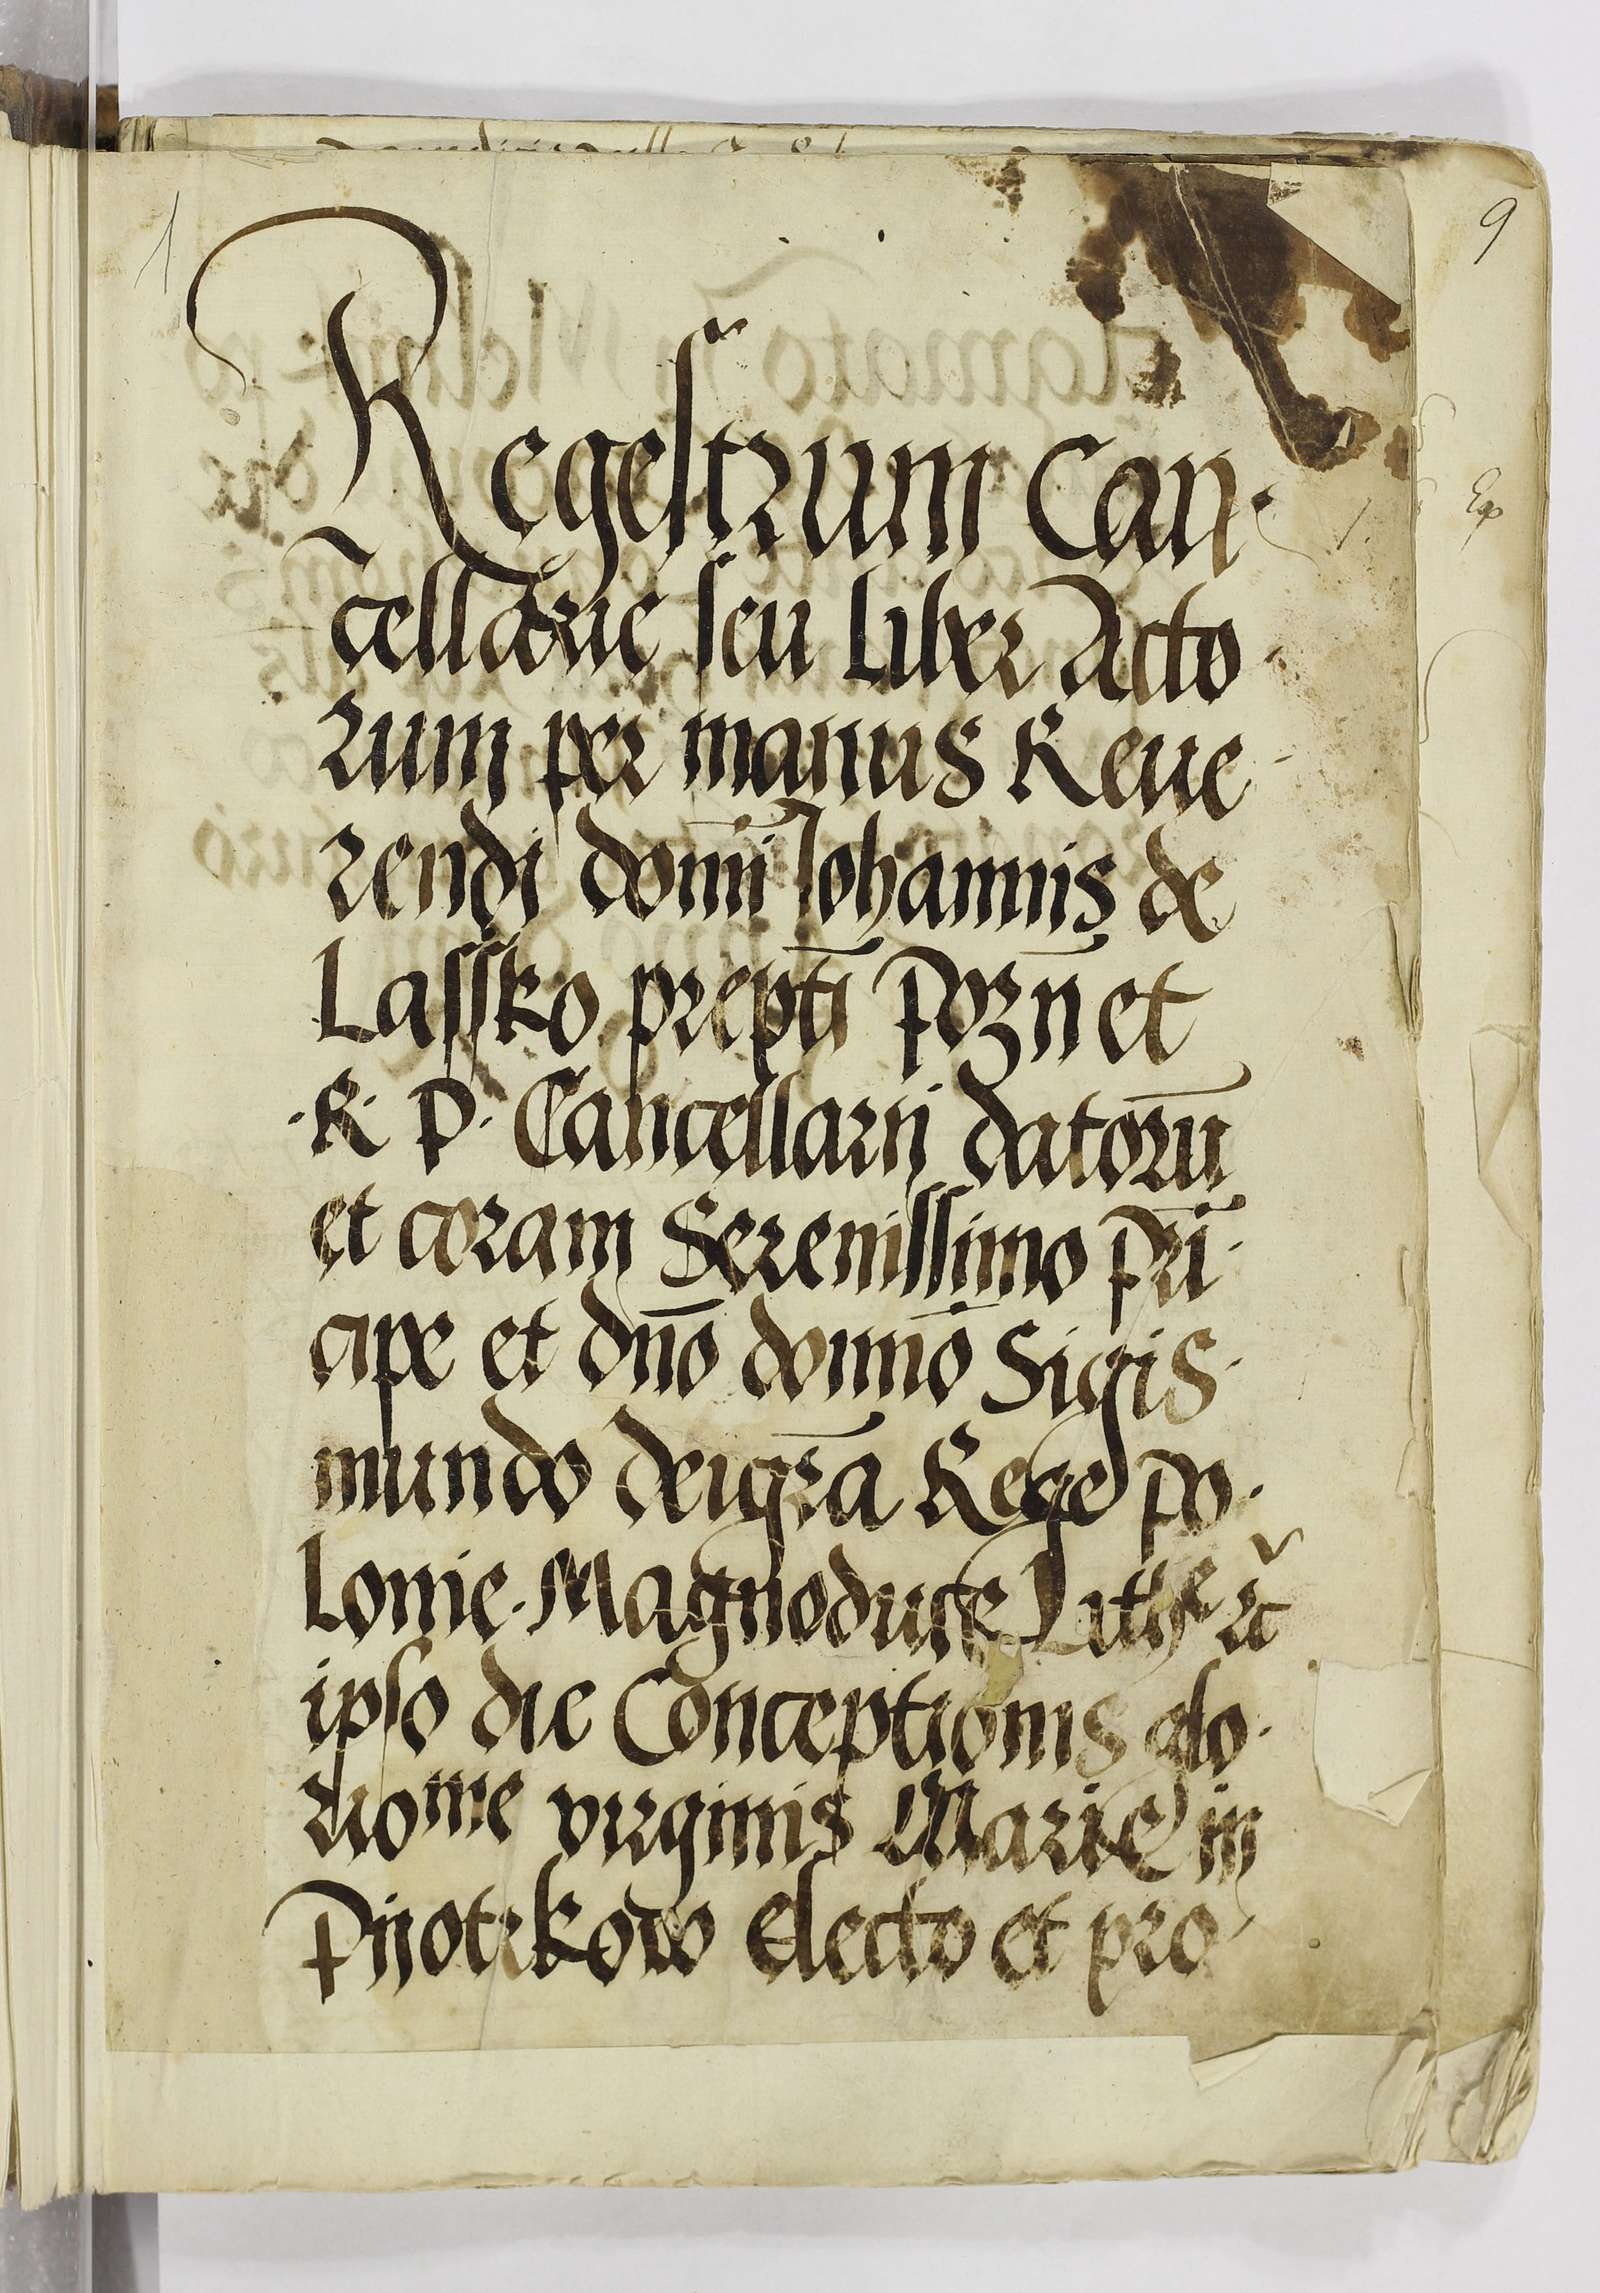 1
9
Regestrum Can-
cellarie seu Liber Acto
rum per manus Reue
rendi domī Iohannis de
Lassko prepti Pozn et
·R· P· Cancellarij datorū
et coram Serenissimo pri
cipe et dno domno Sigis
mundo dei gra Rege po
lonie Magnoduce Litthe
ipso die Conceptionis glo
riose virginis Marie in
Pijotrkow electo et pro